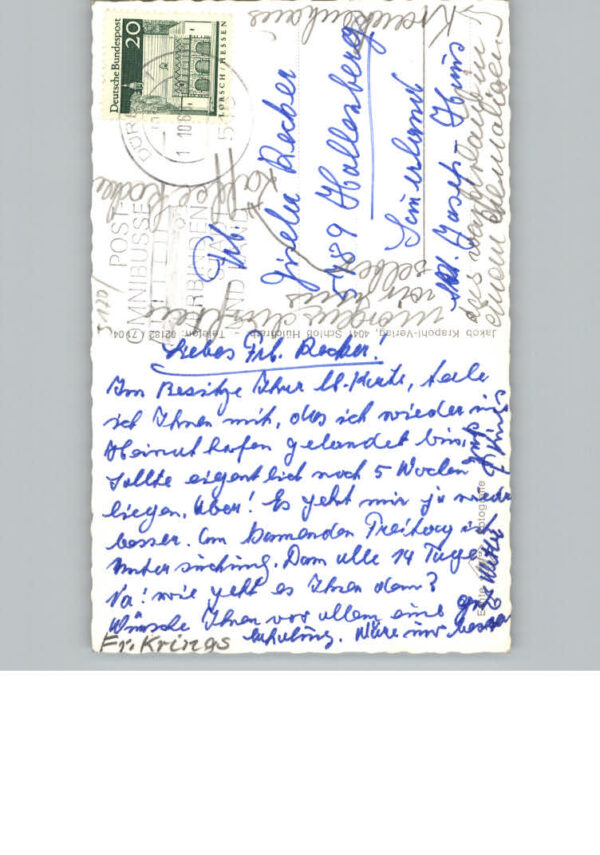 Deutsche Bundespost
20
LORSCH/HESSEN
POST
OMNIBUSSE
Frl.
Gisela Recker
5789 Hallenberg
Sauerland
St. Josefs-Haus
Krankenhaus
Kaffee kochen
morgen durften
wir uns
selber
einem ehemaligen
Jakob Krapohl-Verlag, 4041 Schloß Hülchrath, Telefon: 02182 / 7104
Liebes Frl. Recker!
Im Besitze Ihrer lb. Karte, teile
ich Ihnen mit, das ich wieder im
Heimathafen gelandet bin,
sollte eigentlich noch 5 Wochen
liegen. Aber! Es geht mir ja wieder
besser. Am kommenden Freitag
Untersuchung. Dann alle 14 Tage
Na! wie geht es Ihnen denn?
Wünsche Ihnen vor allem eine gute
Erholung. Wäre nur besser
Fr. Krings